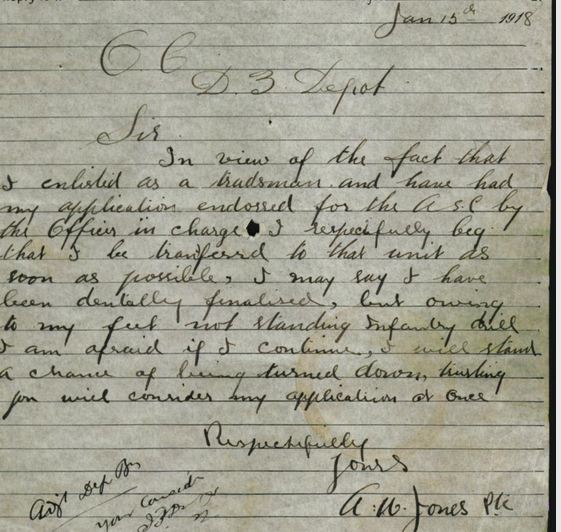 Jan 15th 1918
O C
D. 3 Depot
Sir
In view of the fact that
I enlisted as a tradsman and have had
my application endorsed for the A S.C by
the Officer in charge I respecifully beg
that I be tranferred to that unit as
soon as possible, I may say I have
been dentally finalised, but owing
to my feet not standing Infantry drill
I am afraid if I continue, I will stand
a chance of being turned down, trusting
you will consider my application at once
Respectifully
Yours
A. W. Jones Pte
Adjt Dep Bn
your consid